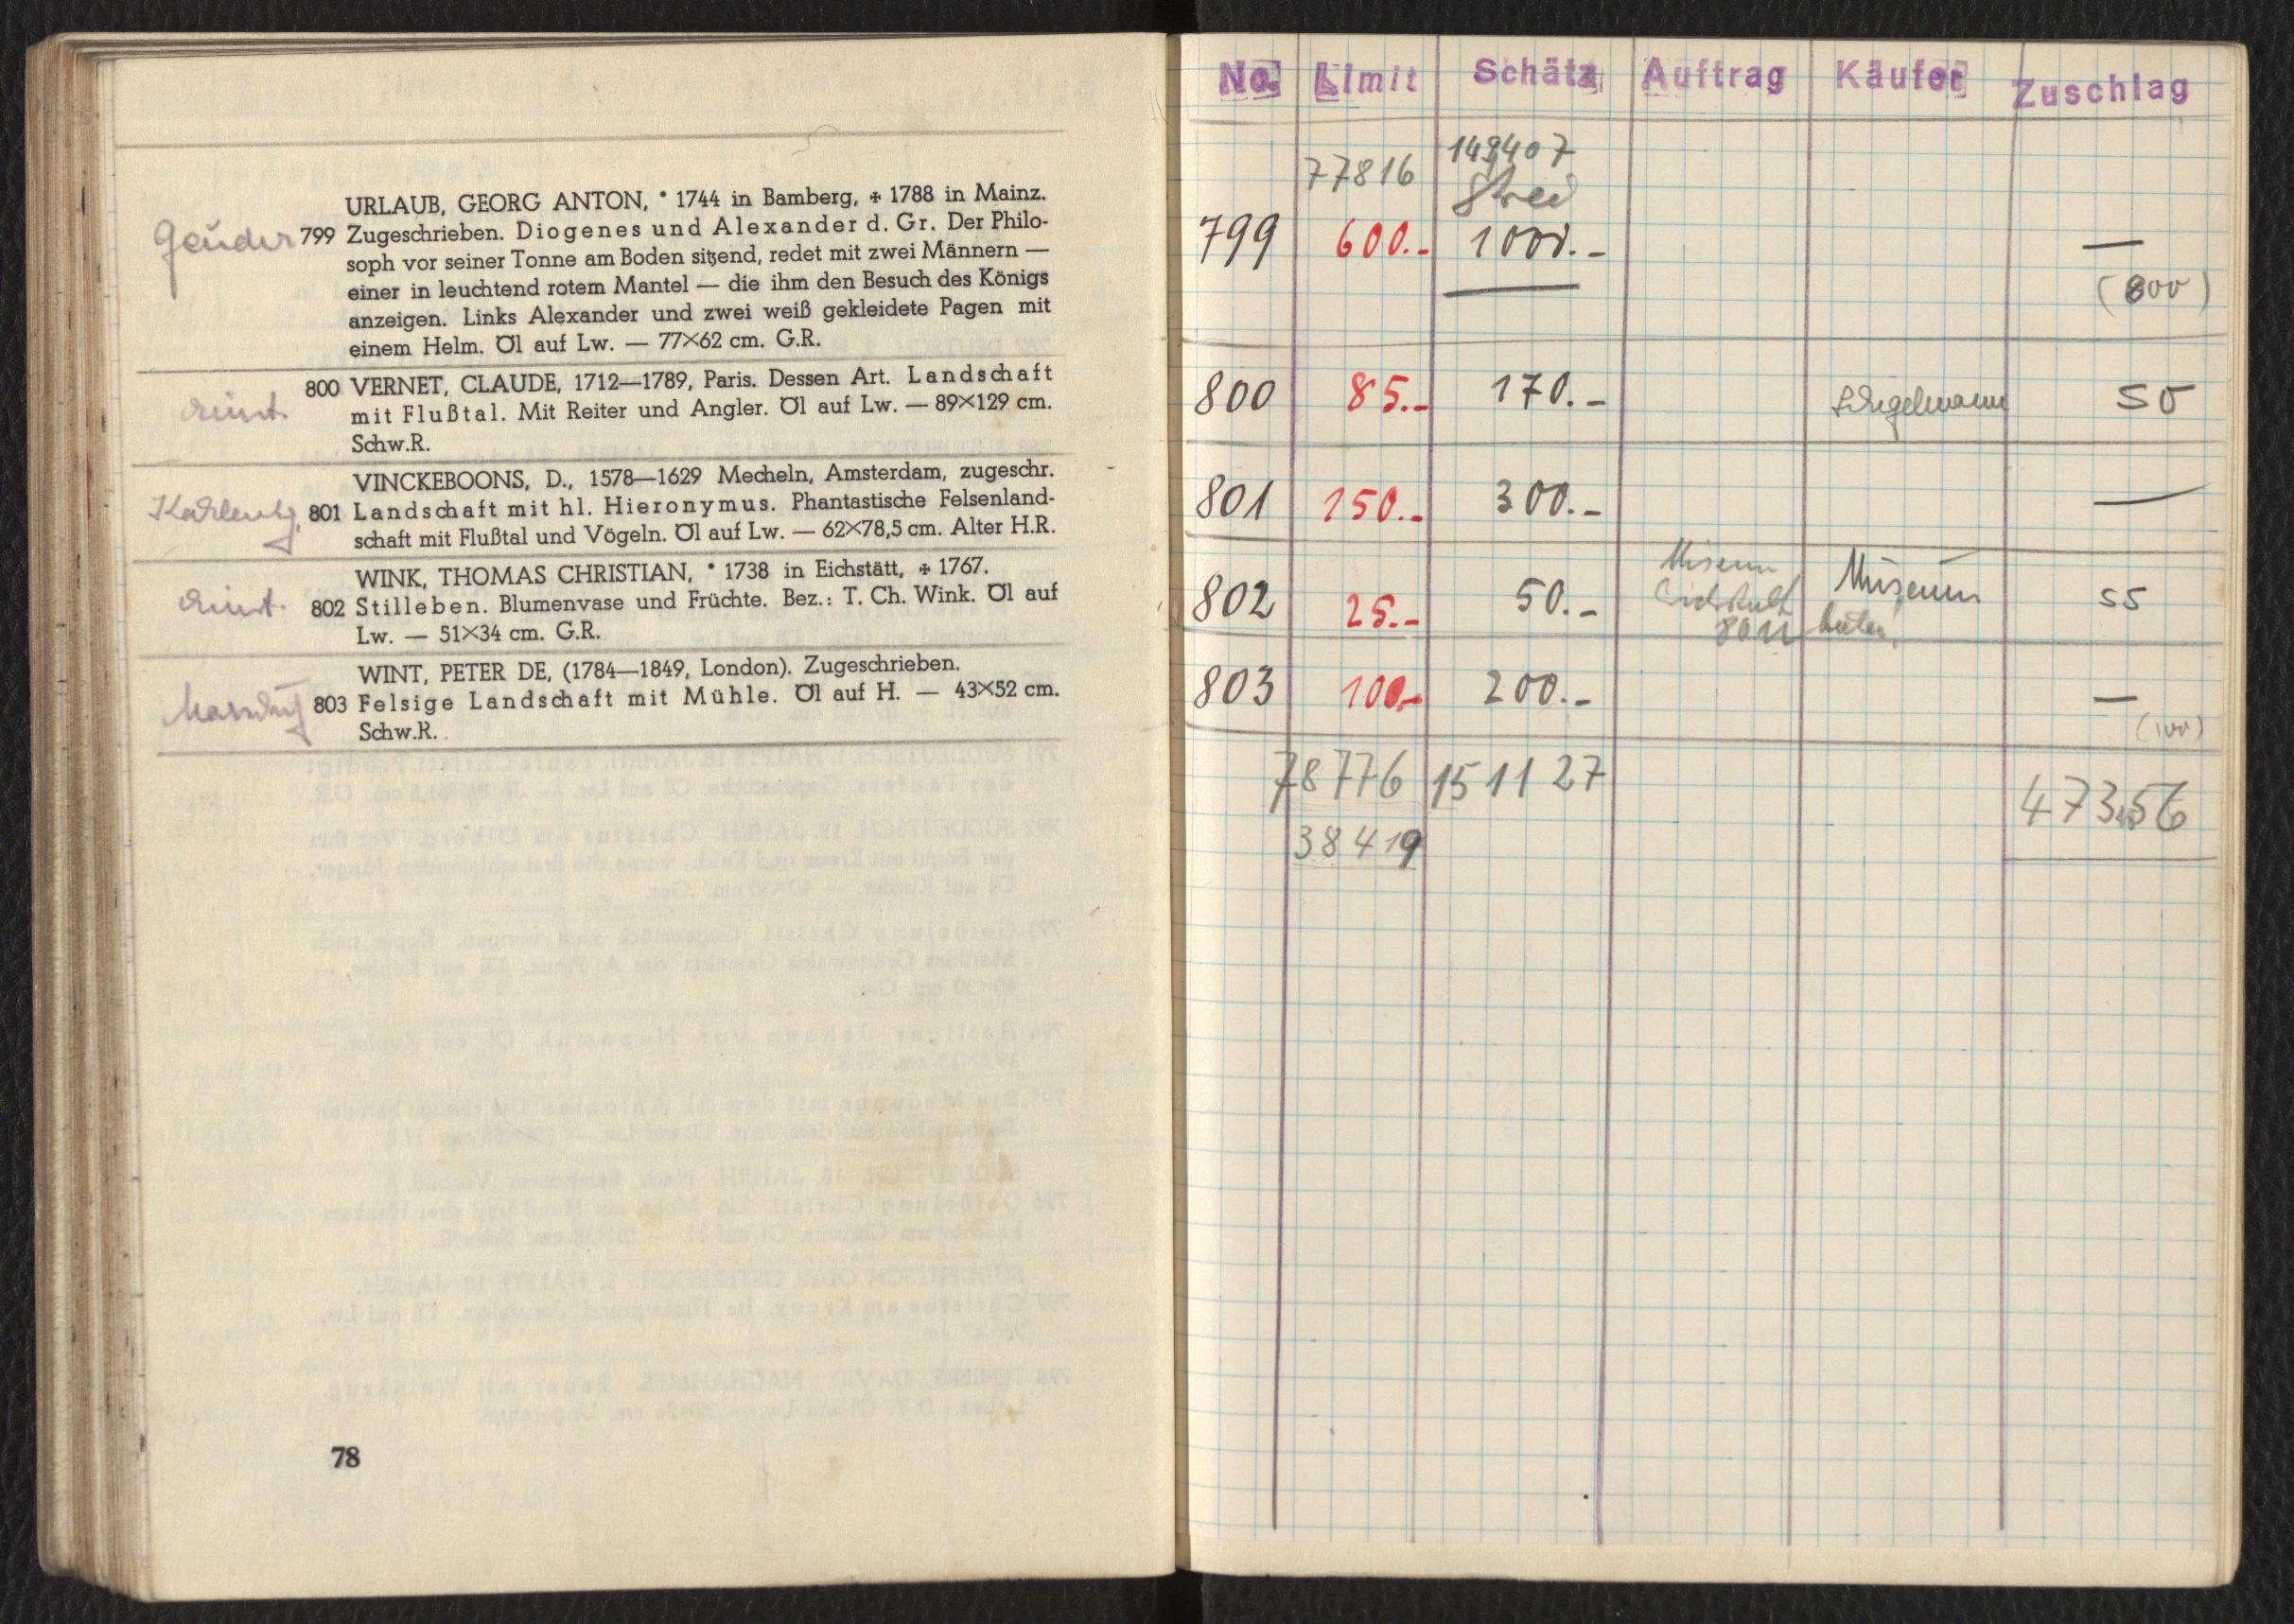 URLAUB, GEORG ANTON, * 1744 in Bamberg, ✠ 1788 in Mainz.
Geuder 799 Zugeschrieben. Diogenes und Alexander d. Gr. Der Philo-
soph vor seiner Tonne am Boden sitzend, redet mit zwei Männern —
einer in leuchtend rotem Mantel — die ihm den Besuch des Königs
anzeigen. Links Alexander und zwei weiß gekleidete Pagen mit
einem Helm. Öl auf Lw. — 77×62 cm. G.R.
800 VERNET, CLAUDE, 1712—1789, Paris. Dessen Art. Landschaft
mit Flußtal. Mit Reiter und Angler. Öl auf Lw. — 89×129 cm.
Schw.R.
VINCKEBOONS, D., 1578—1629 Mecheln, Amsterdam, zugeschr.
801 Landschaft mit hl. Hieronymus. Phantastische Felsenland-
schaft mit Flußtal und Vögeln. Öl auf Lw. — 62×78,5 cm. Alter H.R.
WINK, THOMAS CHRISTIAN, * 1738 in Eichstätt, ✠ 1767.
802 Stilleben. Blumenvase und Früchte. Bez.: T. Ch. Wink. Öl auf
Lw. — 51×34 cm. G.R.
WINT, PETER DE, (1784—1849, London). Zugeschrieben.
803 Felsige Landschaft mit Mühle. Öl auf H. — 43×52 cm.
Schw.R.
78
No. Limit Schätz Auftrag Käufer Zuschlag
77816 149407
799 600.- 1000.- —
(800)
800 85.- 170.- Engelmann 50
801 150.- 300.- —
802 25.- 50.- Museum Museum 55
803 100.- 200.- —
(100)
78776 151127 47356
38419